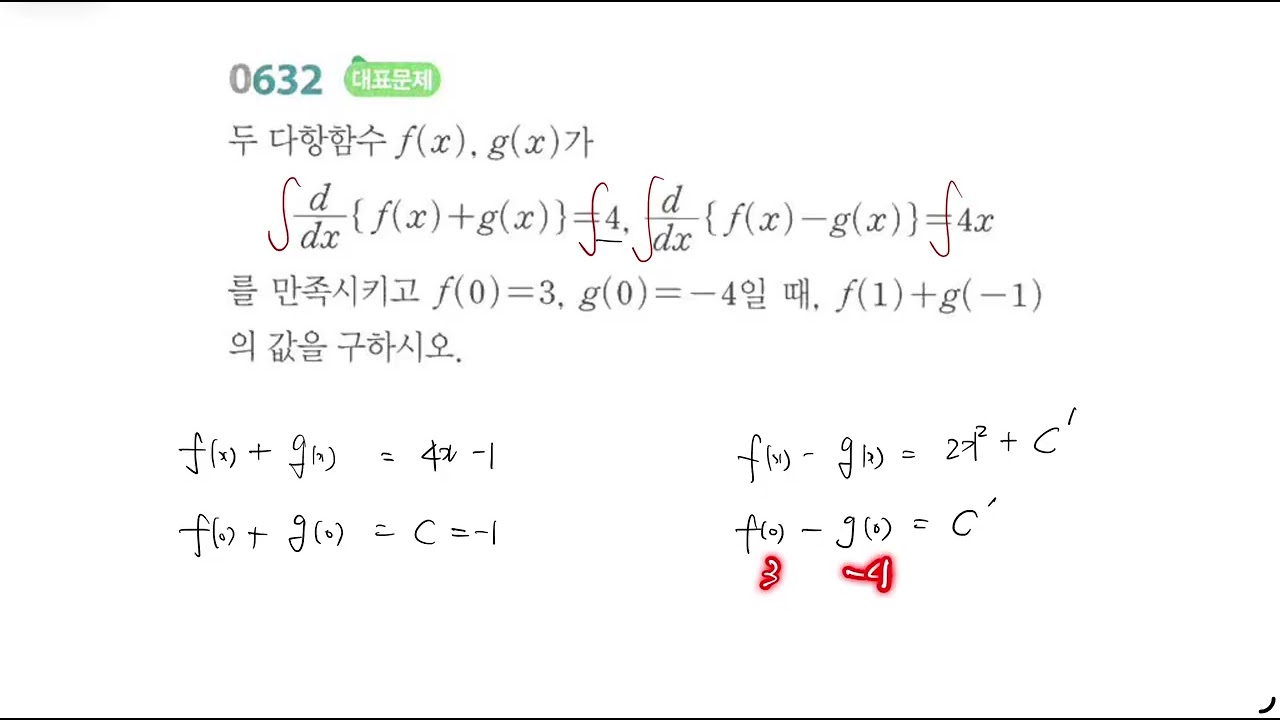 0632 대표문제
두 다항함수 f(x), g(x)가
∫ d/dx { f(x)+g(x)}=∫4, ∫ d/dx { f(x)−g(x)}=∫4x
를 만족시키고 f(0)=3, g(0)=−4일 때, f(1)+g(−1)
의 값을 구하시오.
f(x) + g(x) = 4x -1
f(0) + g(0) = C = -1
f(x) - g(x) = 2x² + C′
f(0) - g(0) = C′
3 -4